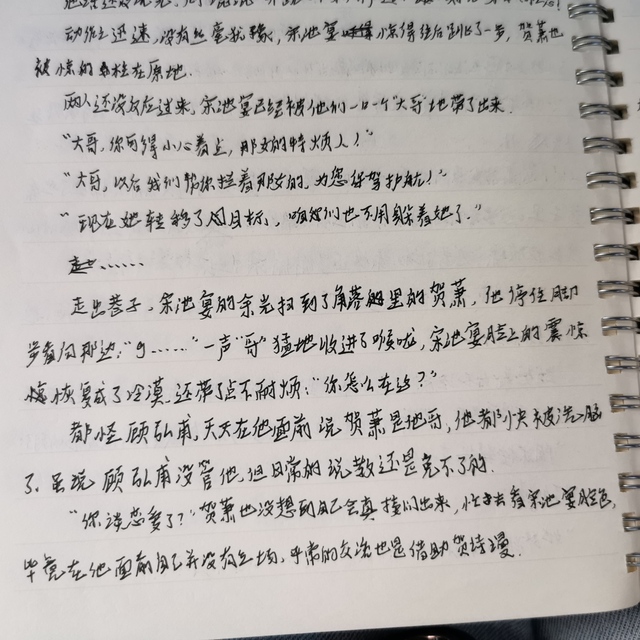 动作之迅速，没有丝毫犹豫，宗池宴惊得往后跳了一步，贺萧也
被惊的杵在原地.
两人还没反应过来，宗池宴已经被他们一口一个“大哥”地带了出来.
“大哥，你可得小心着点，那女的特烦人！”
“大哥，以后我们帮你拦着那女的，为您保驾护航！”
“现在她转移了目标，咱们也不用躲着她了.”
走出巷子，宗池宴的余光扫到了角落里的贺萧，他停住脚
步看向那边：“g……”一声“哥”猛地收进了喉咙，宗池宴脸上的震惊
恢复成了冷漠，还带了点不耐烦：“你怎么在这？”
都怪顾弘甫，天天在他面前说贺萧是他哥，他都快被洗脑
了.虽说顾弘甫没管他，但日常的说教还是免不了的.
“你谈恋爱了？”贺萧也没想到自己会真撞问出来，去看宗池宴脸色，
毕竟在他面前自己并没有立场，平常的交流也是借助贺诗漫.